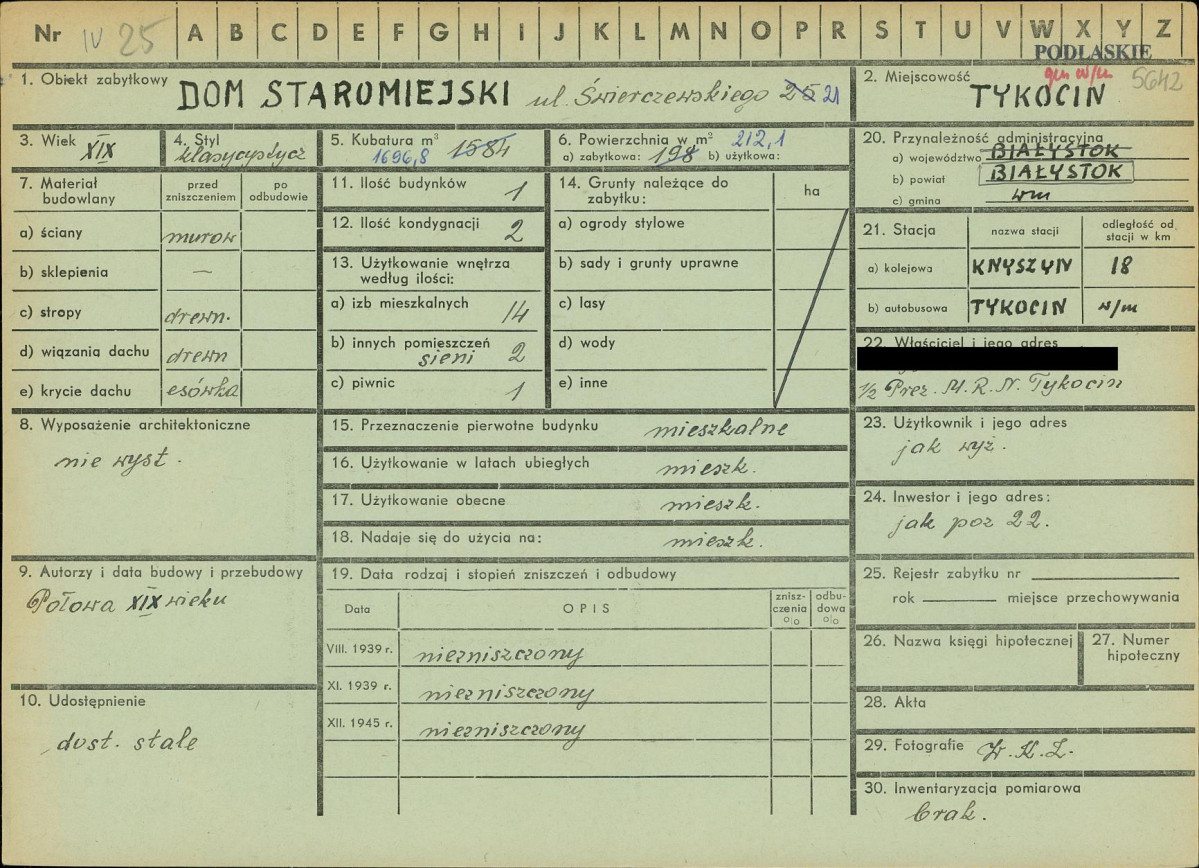 Nr IV 25 A B C D E F G H I J K L M N O P R S T U V W X Y Z
PODLASKIE
1. Obiekt zabytkowy DOM STAROMIEJSKI ul. Świerczewskiego 25 21
2. Miejscowość gm w/m 5642
TYKOCIN
3. Wiek XIX
4. Styl klasycystycz
5. Kubatura m³ 1584
1696,8
6. Powierzchnia w m² 212,1
a) zabytkowa: 198 b) użytkowa:
20. Przynależność administracyjna
a) województwo BIAŁYSTOK
b) powiat BIAŁYSTOK
c) gmina wm
7. Materiał budowlany
przed zniszczeniem
po odbudowie
a) ściany murow
b) sklepienia —
c) stropy drewn.
d) wiązania dachu drewn
e) krycie dachu esówka
11. Ilość budynków 1
12. Ilość kondygnacji 2
13. Użytkowanie wnętrza
według ilości:
a) izb mieszkalnych 14
b) innych pomieszczeń
sieni 2
c) piwnic 1
14. Grunty należące do
zabytku:
ha
a) ogrody stylowe
b) sady i grunty uprawne
c) lasy
d) wody
e) inne
21. Stacja
nazwa stacji
odległość od
stacji w km
a) kolejowa KNYSZYN 18
b) autobusowa TYKOCIN w/m
22. Właściciel i jego adres
1/2 Prez. M.R.N. Tykocin
8. Wyposażenie architektoniczne
nie wyst.
15. Przeznaczenie pierwotne budynku mieszkalne
16. Użytkowanie w latach ubiegłych mieszk.
17. Użytkowanie obecne mieszk.
18. Nadaje się do użycia na: mieszk.
23. Użytkownik i jego adres
jak wyż.
24. Inwestor i jego adres:
jak poz 22.
9. Autorzy i data budowy i przebudowy
Połowa XIX wieku
19. Data rodzaj i stopień zniszczeń i odbudowy
Data
OPIS
znisz-
czenia
o/o
odbu-
dowa
o/o
VIII. 1939 r. niezniszczony
XI. 1939 r. niezniszczony
XII. 1945 r. niezniszczony
25. Rejestr zabytku nr
rok miejsce przechowywania
26. Nazwa księgi hipotecznej
27. Numer
hipoteczny
10. Udostępnienie
dost. stale
28. Akta
29. Fotografie W.K.Z.
30. Inwentaryzacja pomiarowa
brak.